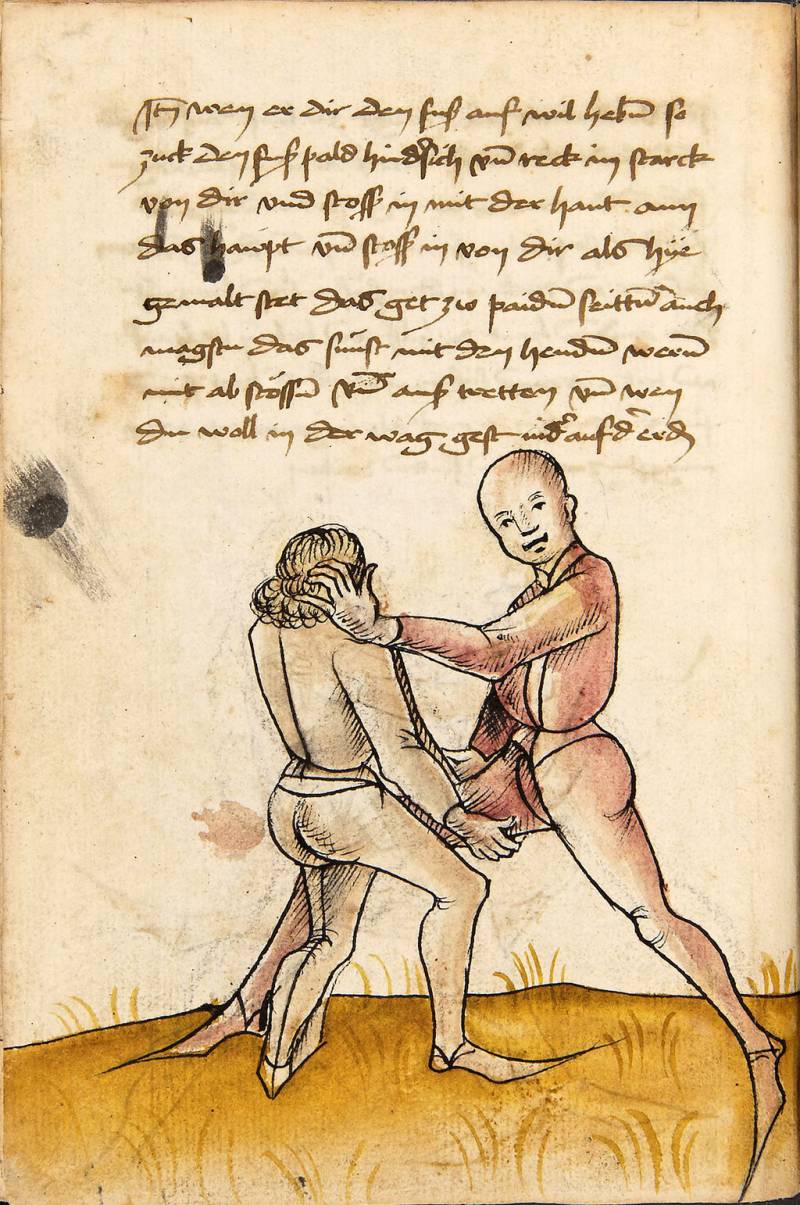 Itm wen er dir den fuß auf wil hebñ so
zuck den fuß pald hind̾sich vñ reck in starck
von dir vnd stoss in mit der hant ann
das haupt vñ stoss in von dir als hÿe
gemalt stet das get zw paidñ seittñ auch
magstu das sünst mit den hendñ werñ
mit ab stossñ vñ auß tretten vñ wen
du woll in der wag gest auf d̾ erdñ